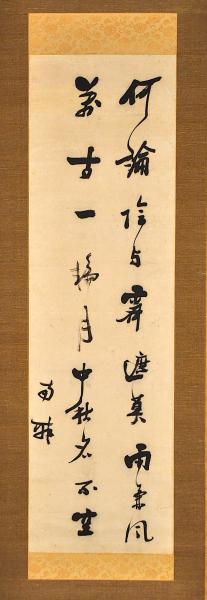 何論陰与霽遮莫雨兼風
萬古一輪月中秋名不空
南